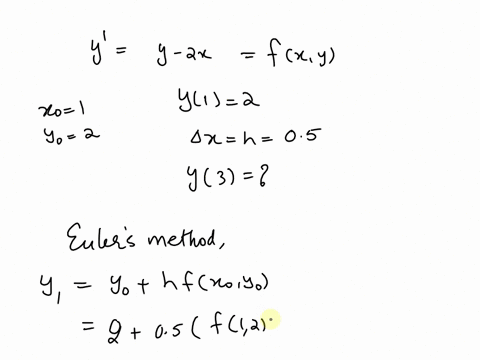 y' = y-2x = f(x,y)
x₀=1
y(1)=2
y₀=2
Δx=h=0.5
y(3)=?
Euler's method,
y₁ = y₀ + hf(x₀,y₀)
= 2 + 0.5 ( f(1,2)